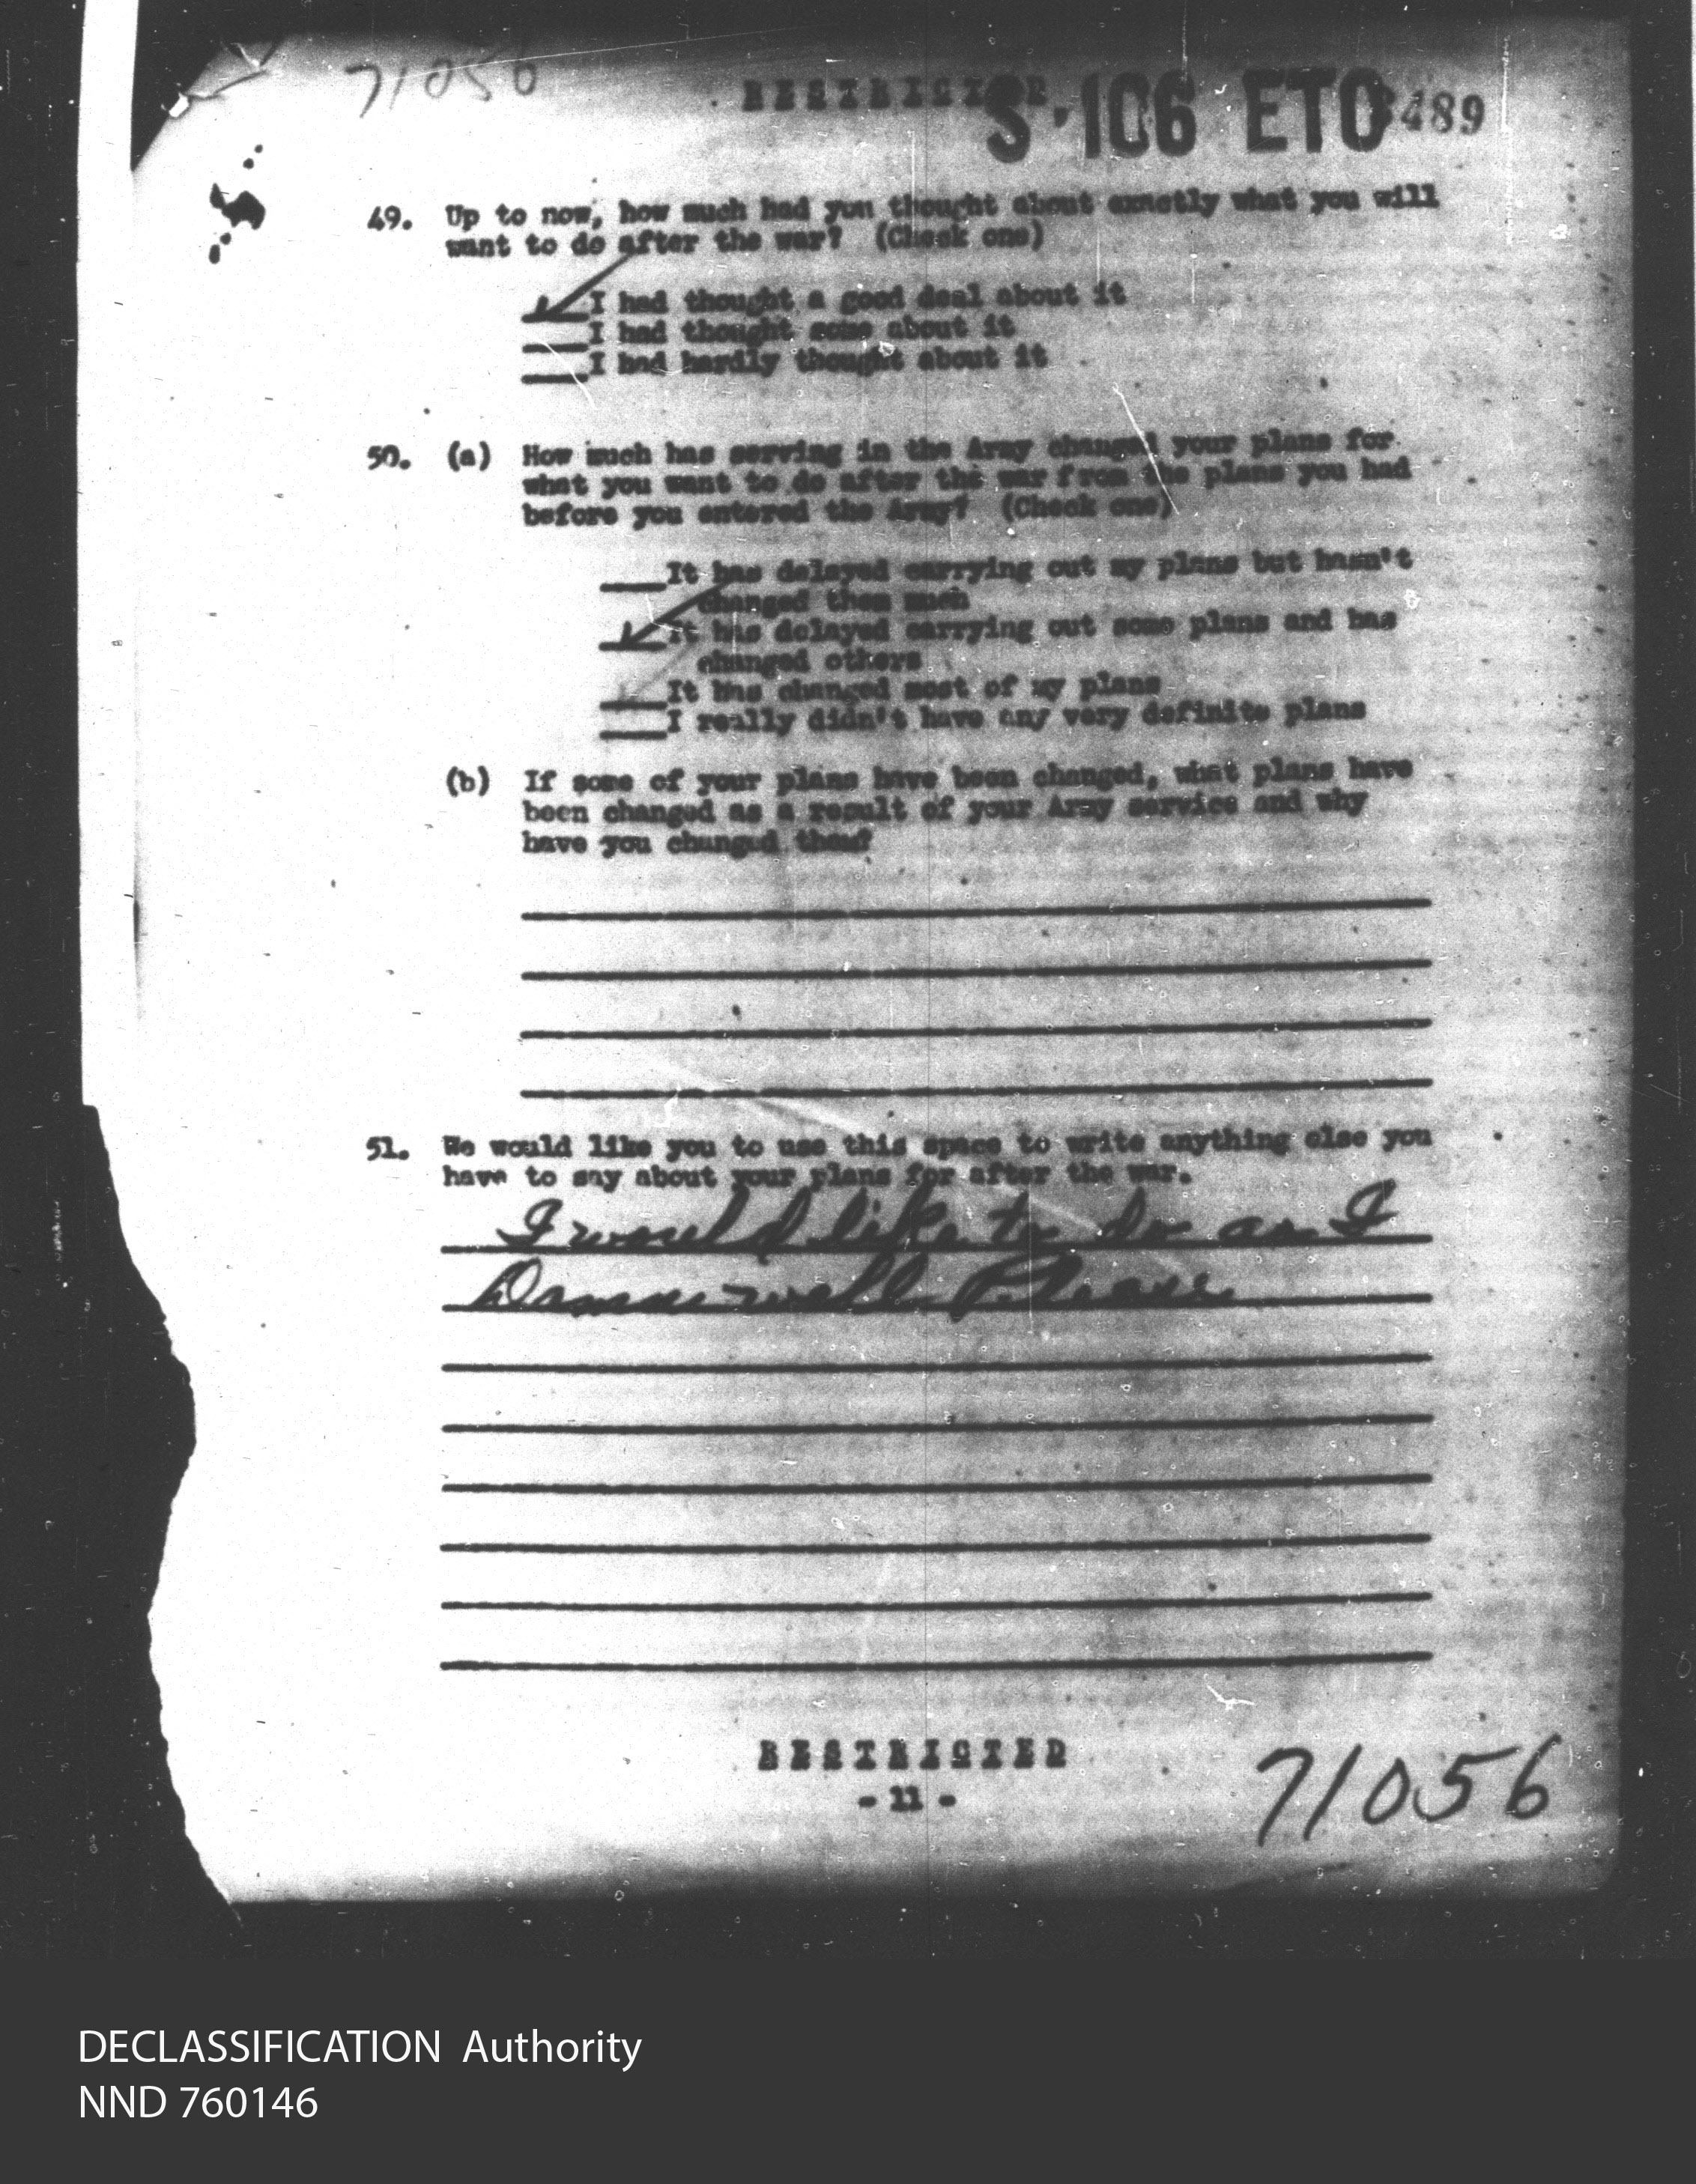 71056
RESTRICTED
S-106 ETO
489
49. Up to now, how much had you thought about exactly what you will
want to do after the war? (Check one)
___I had thought a good deal about it
___I had thought some about it
___I had hardly thought about it
50. (a) How much has serving in the Army changed your plans for
what you want to do after the war from the plans you had
before you entered the Army? (Check one)
___It has delayed carrying out my plans but hasn't
changed them much
___It has delayed carrying out some plans and has
changed others
___It has changed most of my plans
___I really didn't have any very definite plans
(b) If some of your plans have been changed, what plans have
been changed as a result of your Army service and why
have you changed them?
51. We would like you to use this space to write anything else you
have to say about your plans for after the war.
I would like to do as I
Damn well Please
RESTRICTED
- 11 -
71056
DECLASSIFICATION Authority
NND 760146